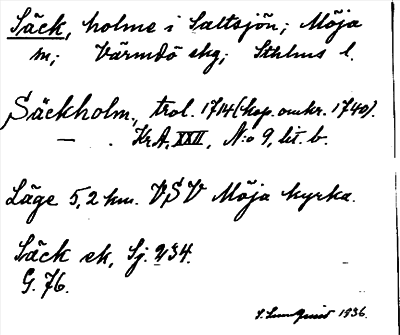 Säck, holme i Saltsjön; Möja
sn; Värmdö skg; Sthlms l.
Säckholm, trol. 1714 (kop. omkr. 1740).
— . Kr.A. XXII, N:o 9, lit. b.
Läge 5,2 km. VSV Möja kyrka.
Säck ek, Sj. 234.
G. 76.
S. Sundquist 1936.